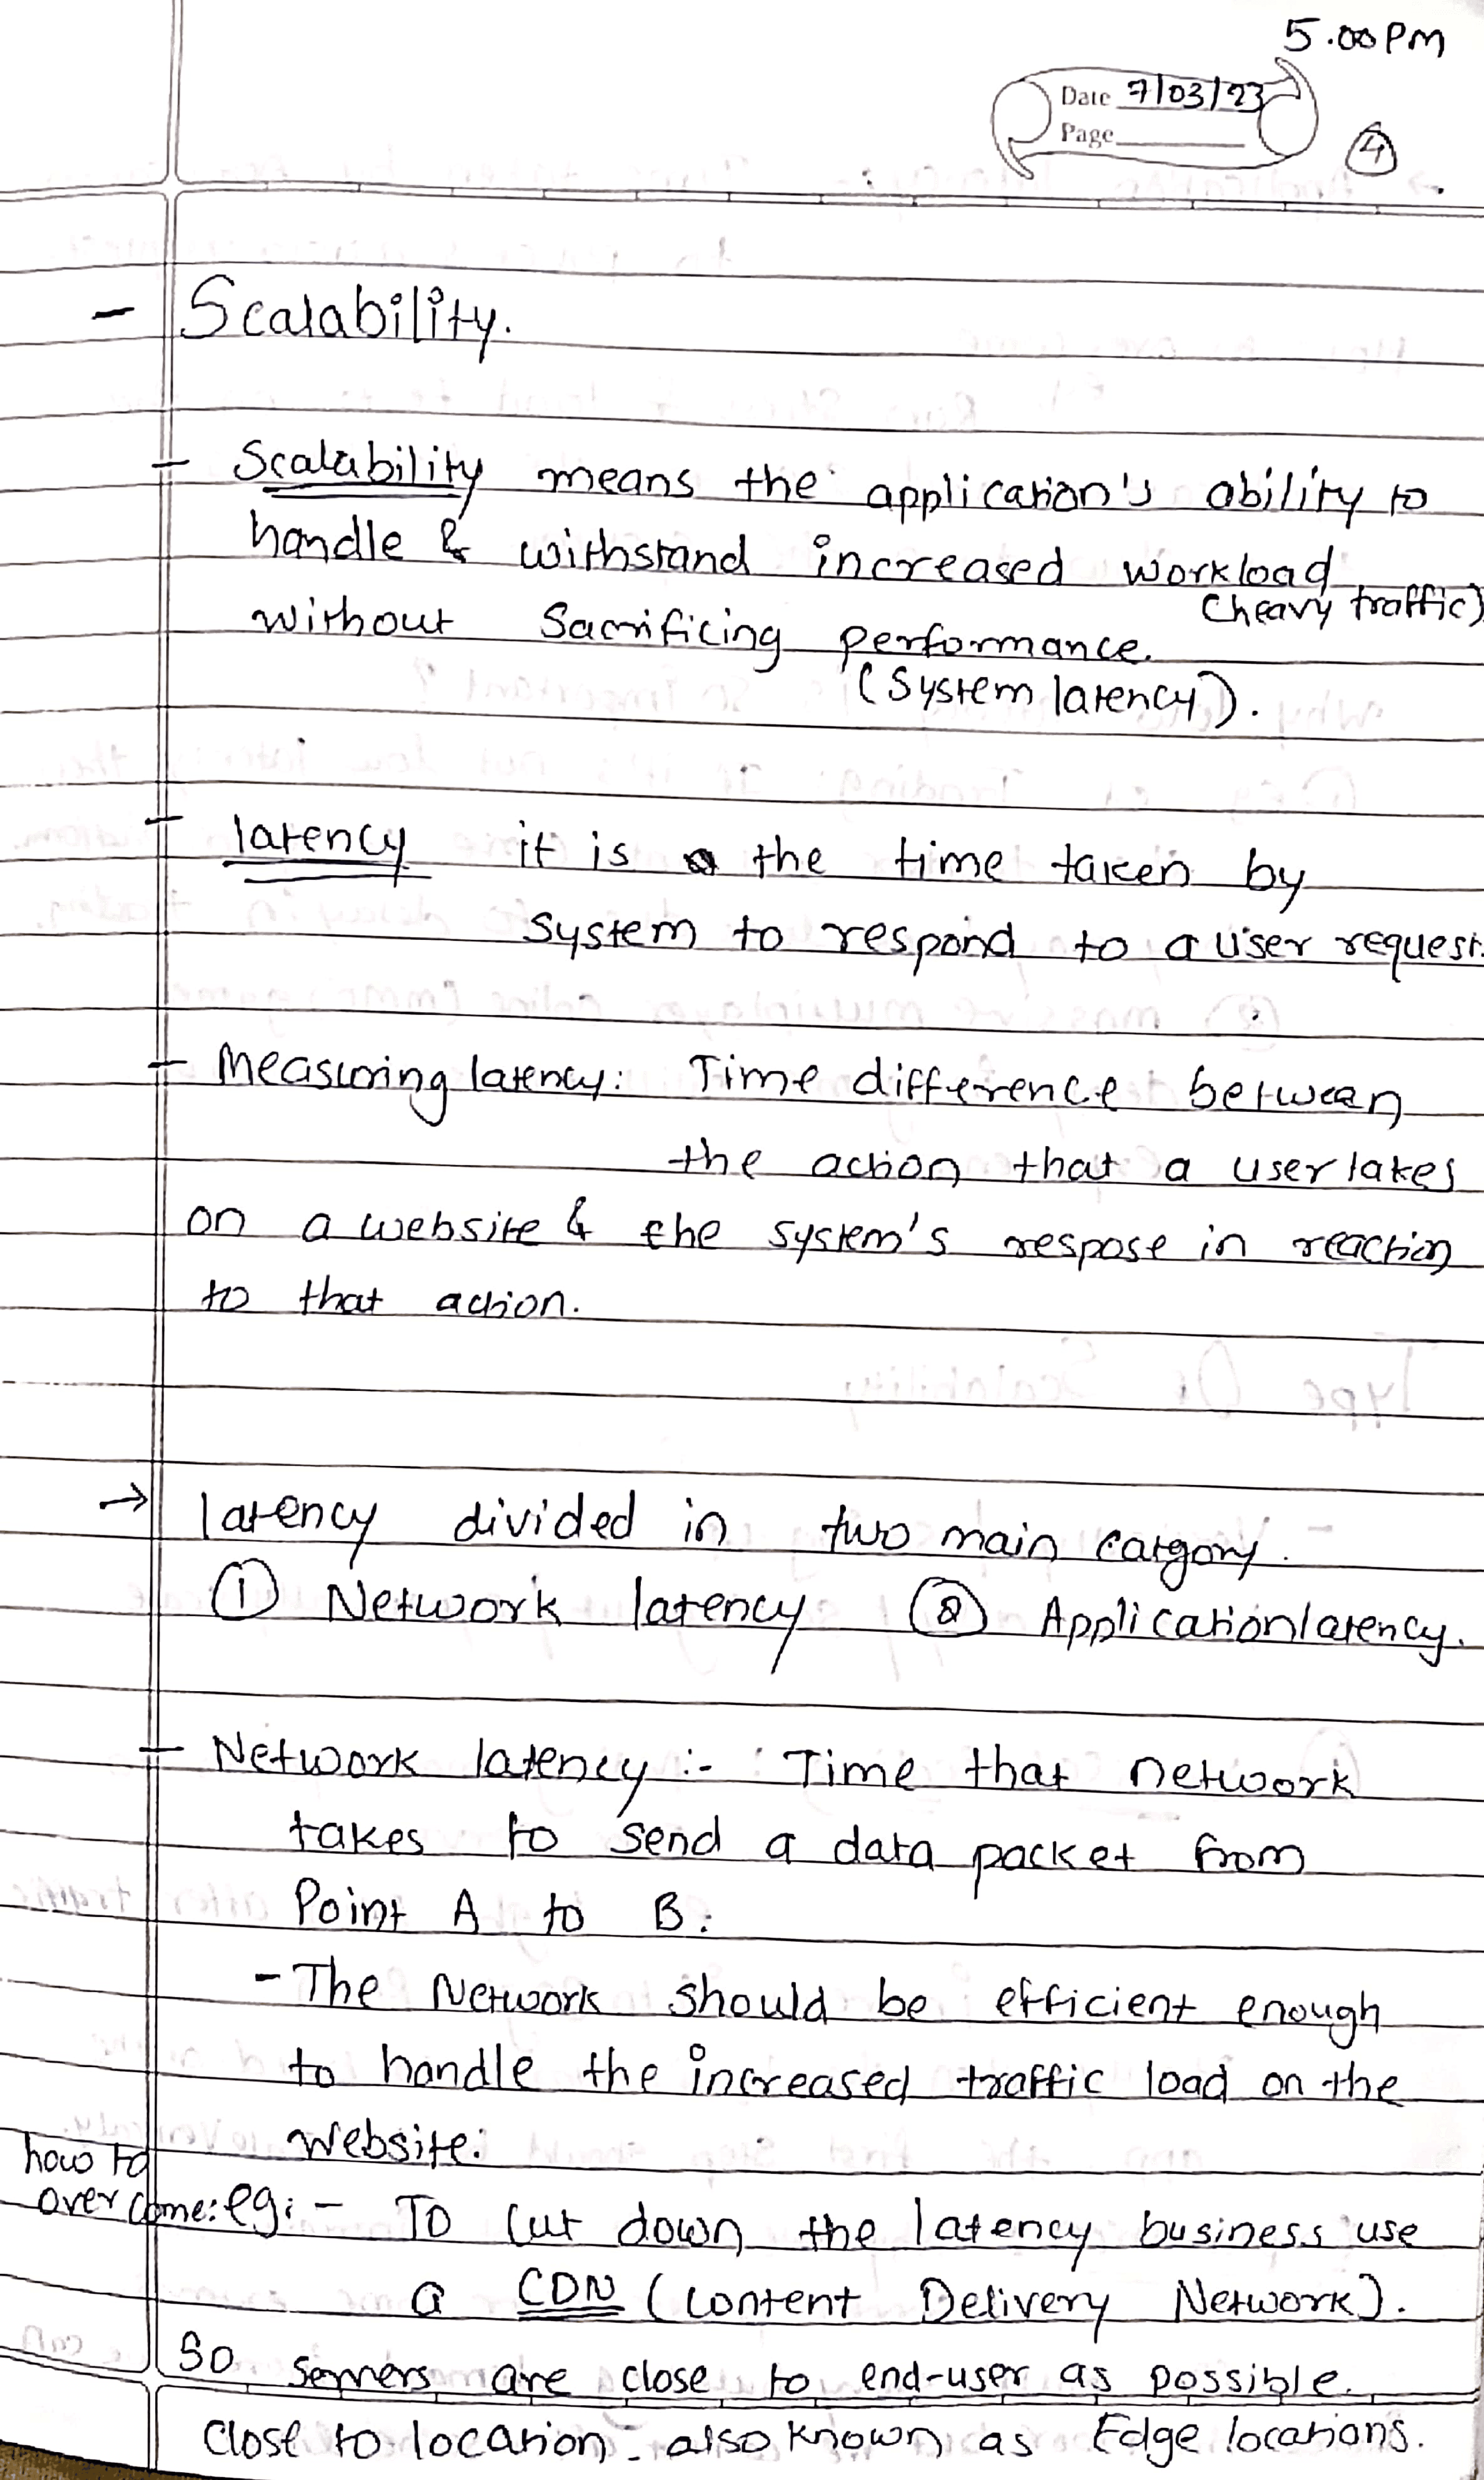 5.00 PM
Date 7/03/23
Page
4
- Scalability.
- Scalability means the application's ability to
handle & withstand increased workload
(heavy traffic)
without Sacrificing performance.
(System latency).
- latency it is the time taken by
System to respond to a user request.
- Measuring latency: Time difference between
the action that a user takes
on a website & the system's respose in reaction
to that action.
→ latency divided in two main catgory.
① Network latency ② Application latency.
- Network latency :- Time that network
takes to send a data packet from
Point A to B.
- The Network should be efficient enough
to handle the increased traffic load on the
website.
how to
over come: eg: - To cut down the latency business use
a CDN (Content Delivery Network).
So servers are close to end-user as possible.
Close to location - also known as Edge locations.